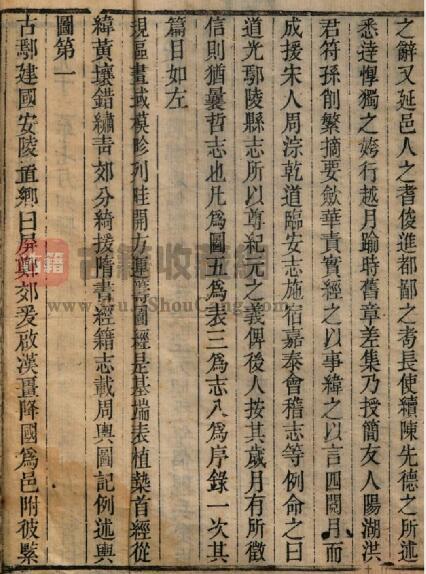 之辭又延邑人之耆俊進都鄙之耉長使續陳先德之所述
悉逹惸獨之姱行越月踰時舊章差集乃授簡友人陽湖洪
君符孫削繁摘要歛華責實經之以事緯之以言四閱月而
成援宋人周淙乾道臨安志施宿嘉泰會稽志等例命之曰
道光鄢陵縣志所以尊紀元之義俾後人按其歲月有所徵
信則猶曩哲志也凡爲圖五爲表三爲志八爲序錄一次其
篇目如左
規區畫域模畛列畦開方運籌圖經是基端表植槷首經從
緯黃壤錯繡靑郊分綺援隋書經籍志載周輿圖記例述輿
圖第一
古鄢建國安陵道鄉日屏鄭郊爰啟漢畺降國爲邑附彼縣
古籍收藏網
www.GuJiShouCang.com